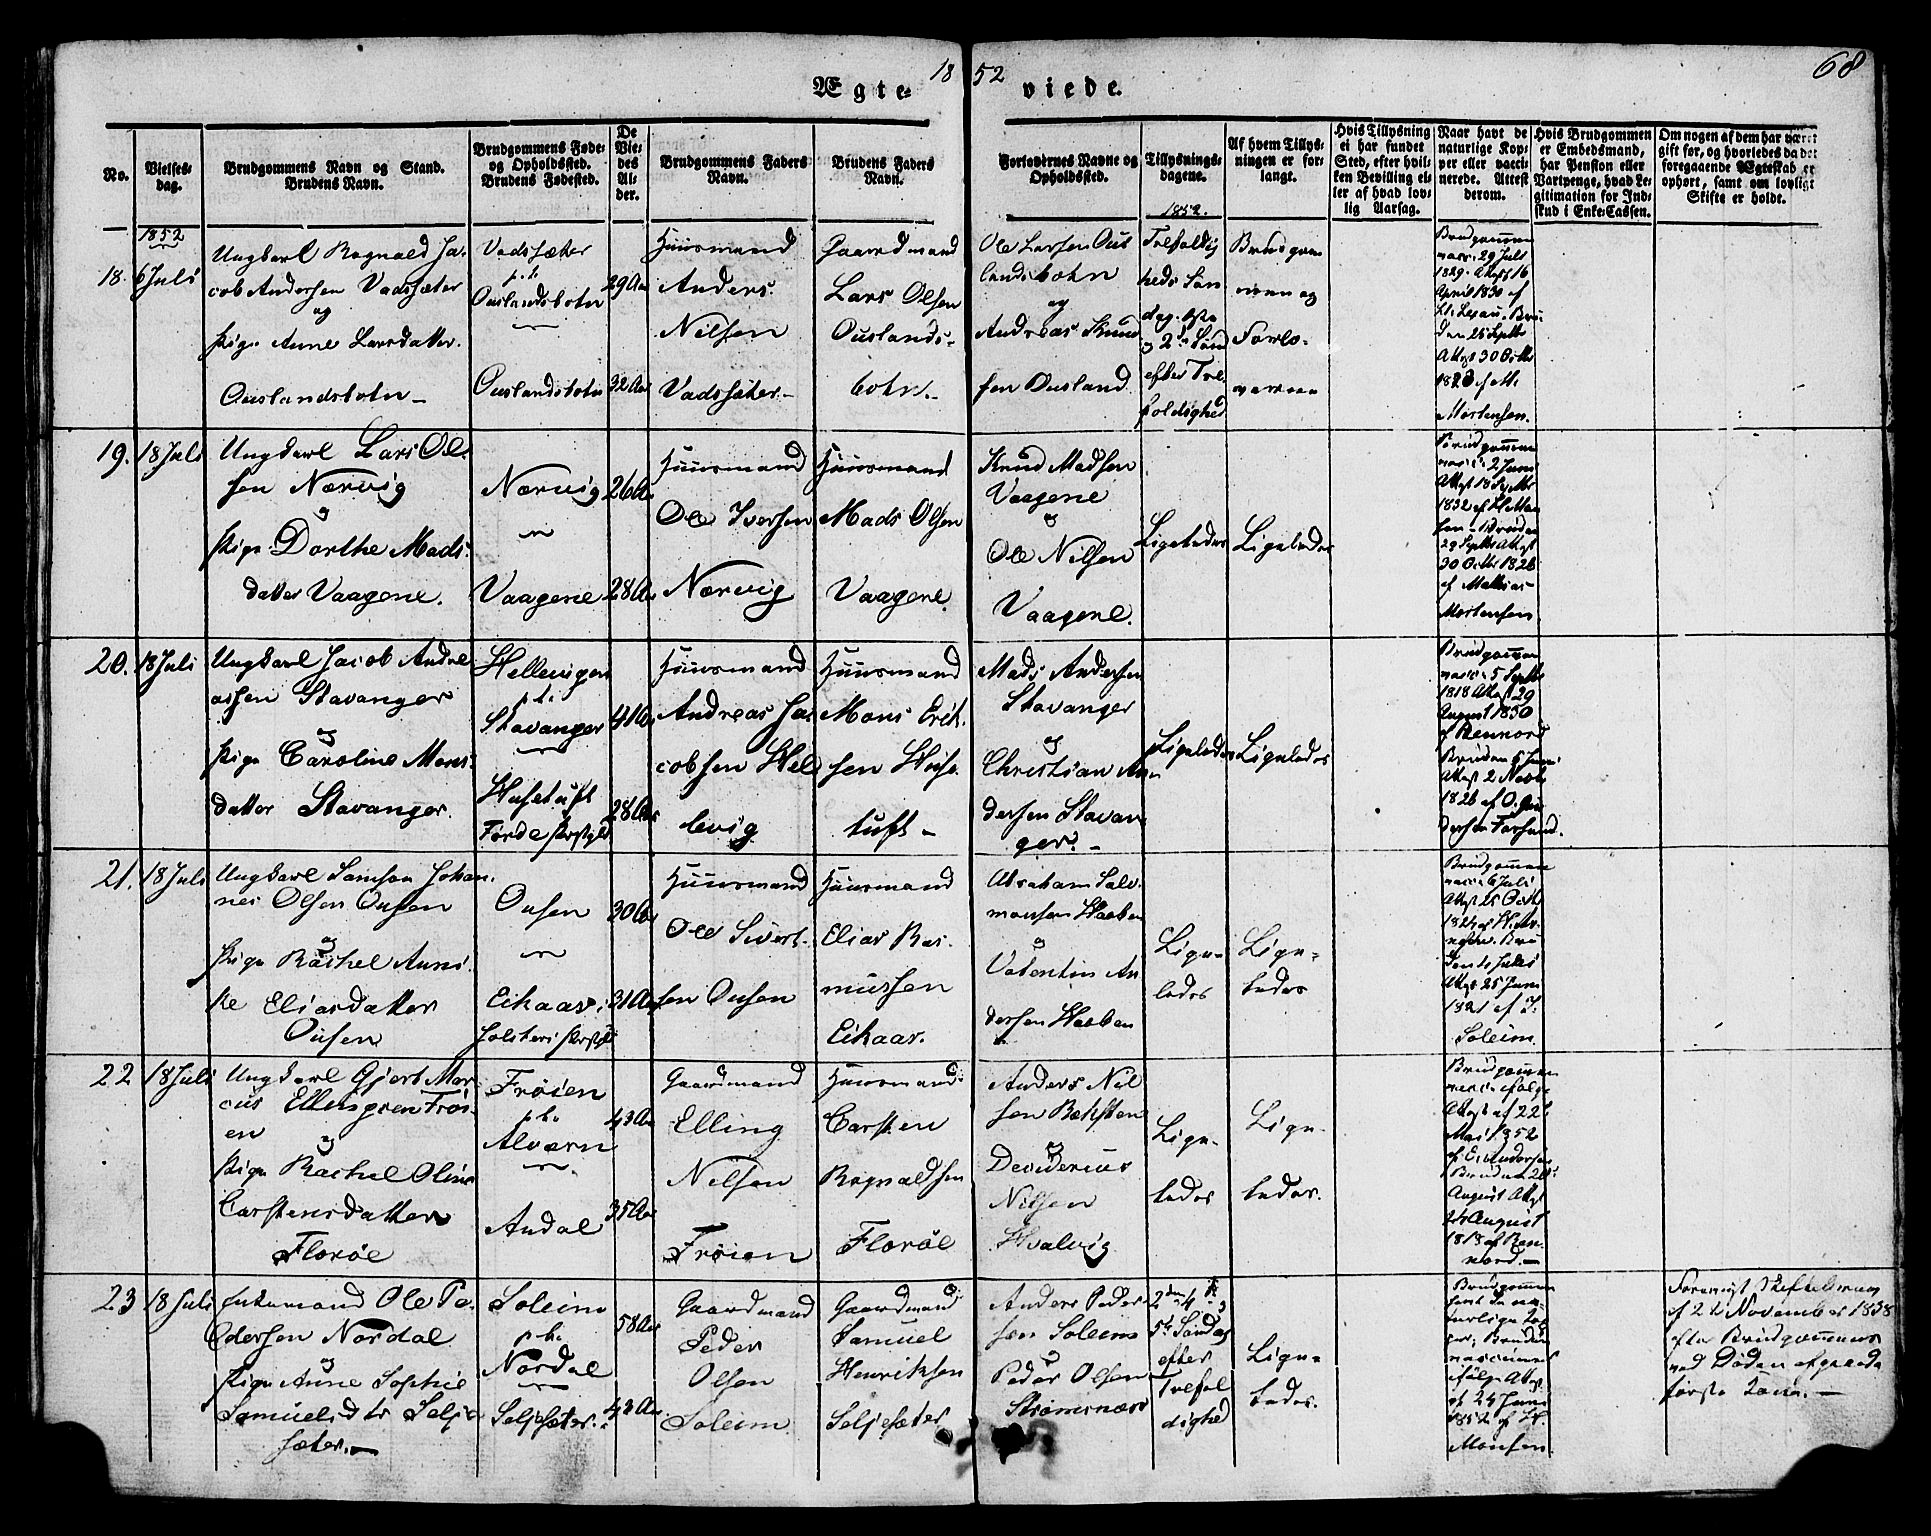 1852
68
Ægteviede.
No.
Vielses-
dag.
Brudgommens Navn og Stand.
Brudens Navn.
Brudgommens Føde-
og Opholdssted.
Brudens Fødested.
De
Vie-
des
Al-
der.
Brudgommens Faders
Navn.
Brudens Faders
Navn.
Forlovernes Navne og
Opholdssted.
Tillysnings-
dagene.
Af hvem Tillys-
ningen er for-
langt.
Hvis Tillysning
ei har fundet
Sted, efter hvil-
ken Bevilling el-
ler af hvad lov-
lig Aarsag.
Naar havt de
naturlige Kop-
per eller vacci-
nerede. Attest
derom.
Hvis Brudgommen
er Embedsmand,
har Pension eller
Vartpenge, hvad Le-
gitimation for Ind-
skud i Enke-Cassen.
Om nogen af dem har været
gift før, og hvorledes da det
foregaaende Ægteskab er
ophørt, samt om lovligt
Skifte er holdt.
1852
1852.
18.
6 Juli
Ungkarl Rognald Ja-
cob Andersen Vadsæter
og
Pige Anne Larsdatter
Ouslandsbotn
Vadsæter
p.t.
Ouslandsbotn
Ouslandsbotn
29 Aar
32 Aar
Huusmand
Anders
Nilsen
Vadsæter
Gaardmand
Lars Olsen
Ouslands-
botn.
Ole Larsen Ous
landsbotn
og
Andreas Knud
sen Ousland
Trefoldig
heds Søn
dag, 1ste
og 2den Sønd
efter Tre
foldighed
Brudgom
men og
Forlo-
verne
Brudgommen
vacc. 29 Juli
1829. Attest 16
April 1830 af
Bru
den 25 Septbr
Attest 30 Octbr
af M.
Mortensen.
19.
18 Juli
Ungkarl Lars Ol-
sen Nærvig
og
Pige Dorthe Mads-
datter Vaagene.
Nærvig
Vaagene
26 Aar
28 Aar
Huusmand
Ole Iversen
Nærvig
Huusmand
Mads Olsen
Vaagene.
Knud Madsen
Vaagene
og
Ole Nilsen
Vaagene.
Ligeledes
Ligeledes
Brudgommen
vacc. 2 Juni
Attest 18 Septbr
1832 af
Bruden
29 Septbr Attest
30 Octbr 1826
af Mathias
Mortensen
20.
18 Juli
Ungkarl Jacob Andre
assen Stavanger
og
Pige Caroline Mons-
datter Stavanger.
Hellevigen
p.t.
Stavanger
Husetuft
Førde Prstgld
41 Aar
28 Aar
Huusmand
Andreas Ja-
cobsen Hel
levig
Huusmand
Mons Erik-
sen Huse-
tuft
Mads Andersen
Stavanger
og
Christian An-
dersen Stavan-
ger.
Ligeledes
Ligeledes
Brudgommen
vacc. 5 Septbr
1818 Attest 29
August 1830
af Rennord
Bruden 6 Juni
Attest 2 Novbr
1826 af O. Gun
dersen Farsund.
21.
18 Juli
Ungkarl Samson Johan-
nes Olsen Ousen
og
Pige Rachel Anni-
ke Eliasdatter
Ousen
Ousen
Eikaas i
Jølsters Prstgld
30 Aar
31 Aar
Huusmand
Ole Sivert-
sen Ousen
Huusmand
Elias Ras-
mussen
Eikaas.
Abraham Salo-
monsen Hæben
og
Valentin An
dersen Hæben
Lige-
ledes
Lige-
ledes
Brudgommen
vacc. 6 Juli
Attest 25 Octbr
Bru
den 10 Juli
Attest 25 Juni
1821 af J.
Soleim.
22
18 Juli
Ungkarl Gjert Mar-
cus Ellingsen Frøi-
en
og
Pige Rachel Oline
Carstensdatter
Florøe
Frøien
p.t.
Alværn
Andal
43 Aar
35 Aar
Gaardmand
Elling
Nilsen
Frøien
Huusmand
Carsten
Rognaldsen
Florøe
Anders Nil
sen Batalden
og
Desiderius
Nilsen
Hvalvig
Lige-
ledes
Lige-
ledes.
Brudgommen
vacc. ifølge
Attest af 22de
Mai 1852
af E. Andersen
Bruden 20de
August Attest
24 August
1818 af Ren-
nord.
23
18 Juli
Enkemand Ole Pe-
dersen Nordal
og
Pige Anne Sophie
Samuelsdtr Selje
sæter.
Soleim
p.t.
Nordal
Seljesæter.
58 Aar
42 Aar
Gaardmand
Peder
Olsen
Soleim
Gaardmand
Samuel
Henriksen
Seljesæter
Anders Peder-
sen Soleim
og
Peder Olsen
Strømsnæs
2den, 4de og
5te Søndag
efter
Trefol
dighed
Lige-
ledes.
Brudgommen
havt de na-
turlige Kop-
per, Bruden
vaccineret
ifølge Attest
af 24 Juni
1852 af H.
Monsen.
Forevist Skiftebrev
af 22 November 1838
efter Brudgommens
ved Døden afgaaede
første Kone.